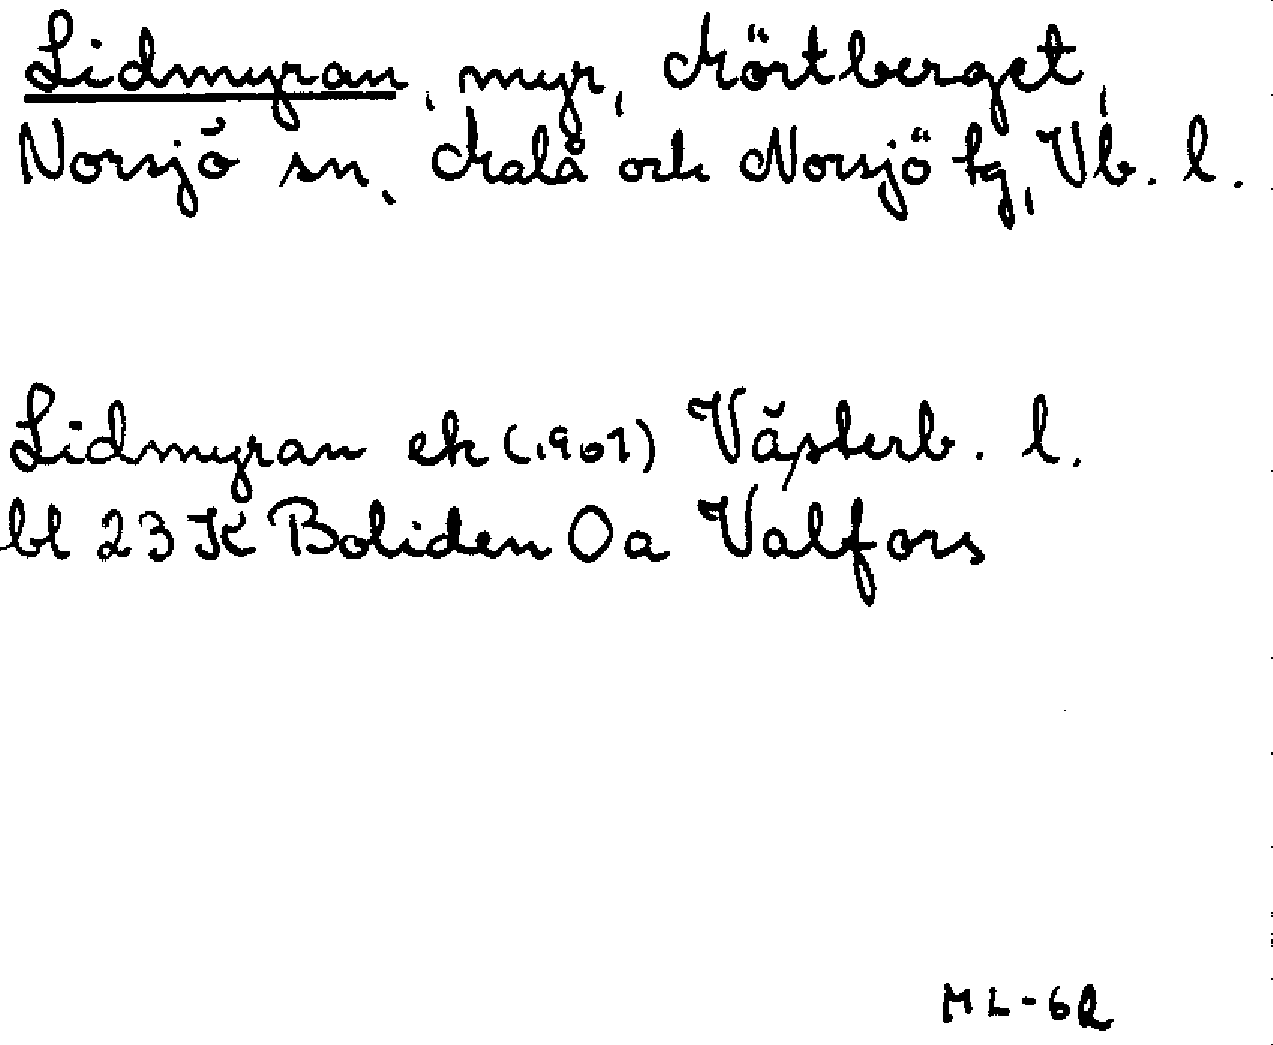 Lidmyran, myr, Mörtberget,
Norsjö sn, Malå och Norsjö tg, Vb. l.
Lidmyran ek (1961) Västerb. l.
bl 23 K Boliden 0a Valfors